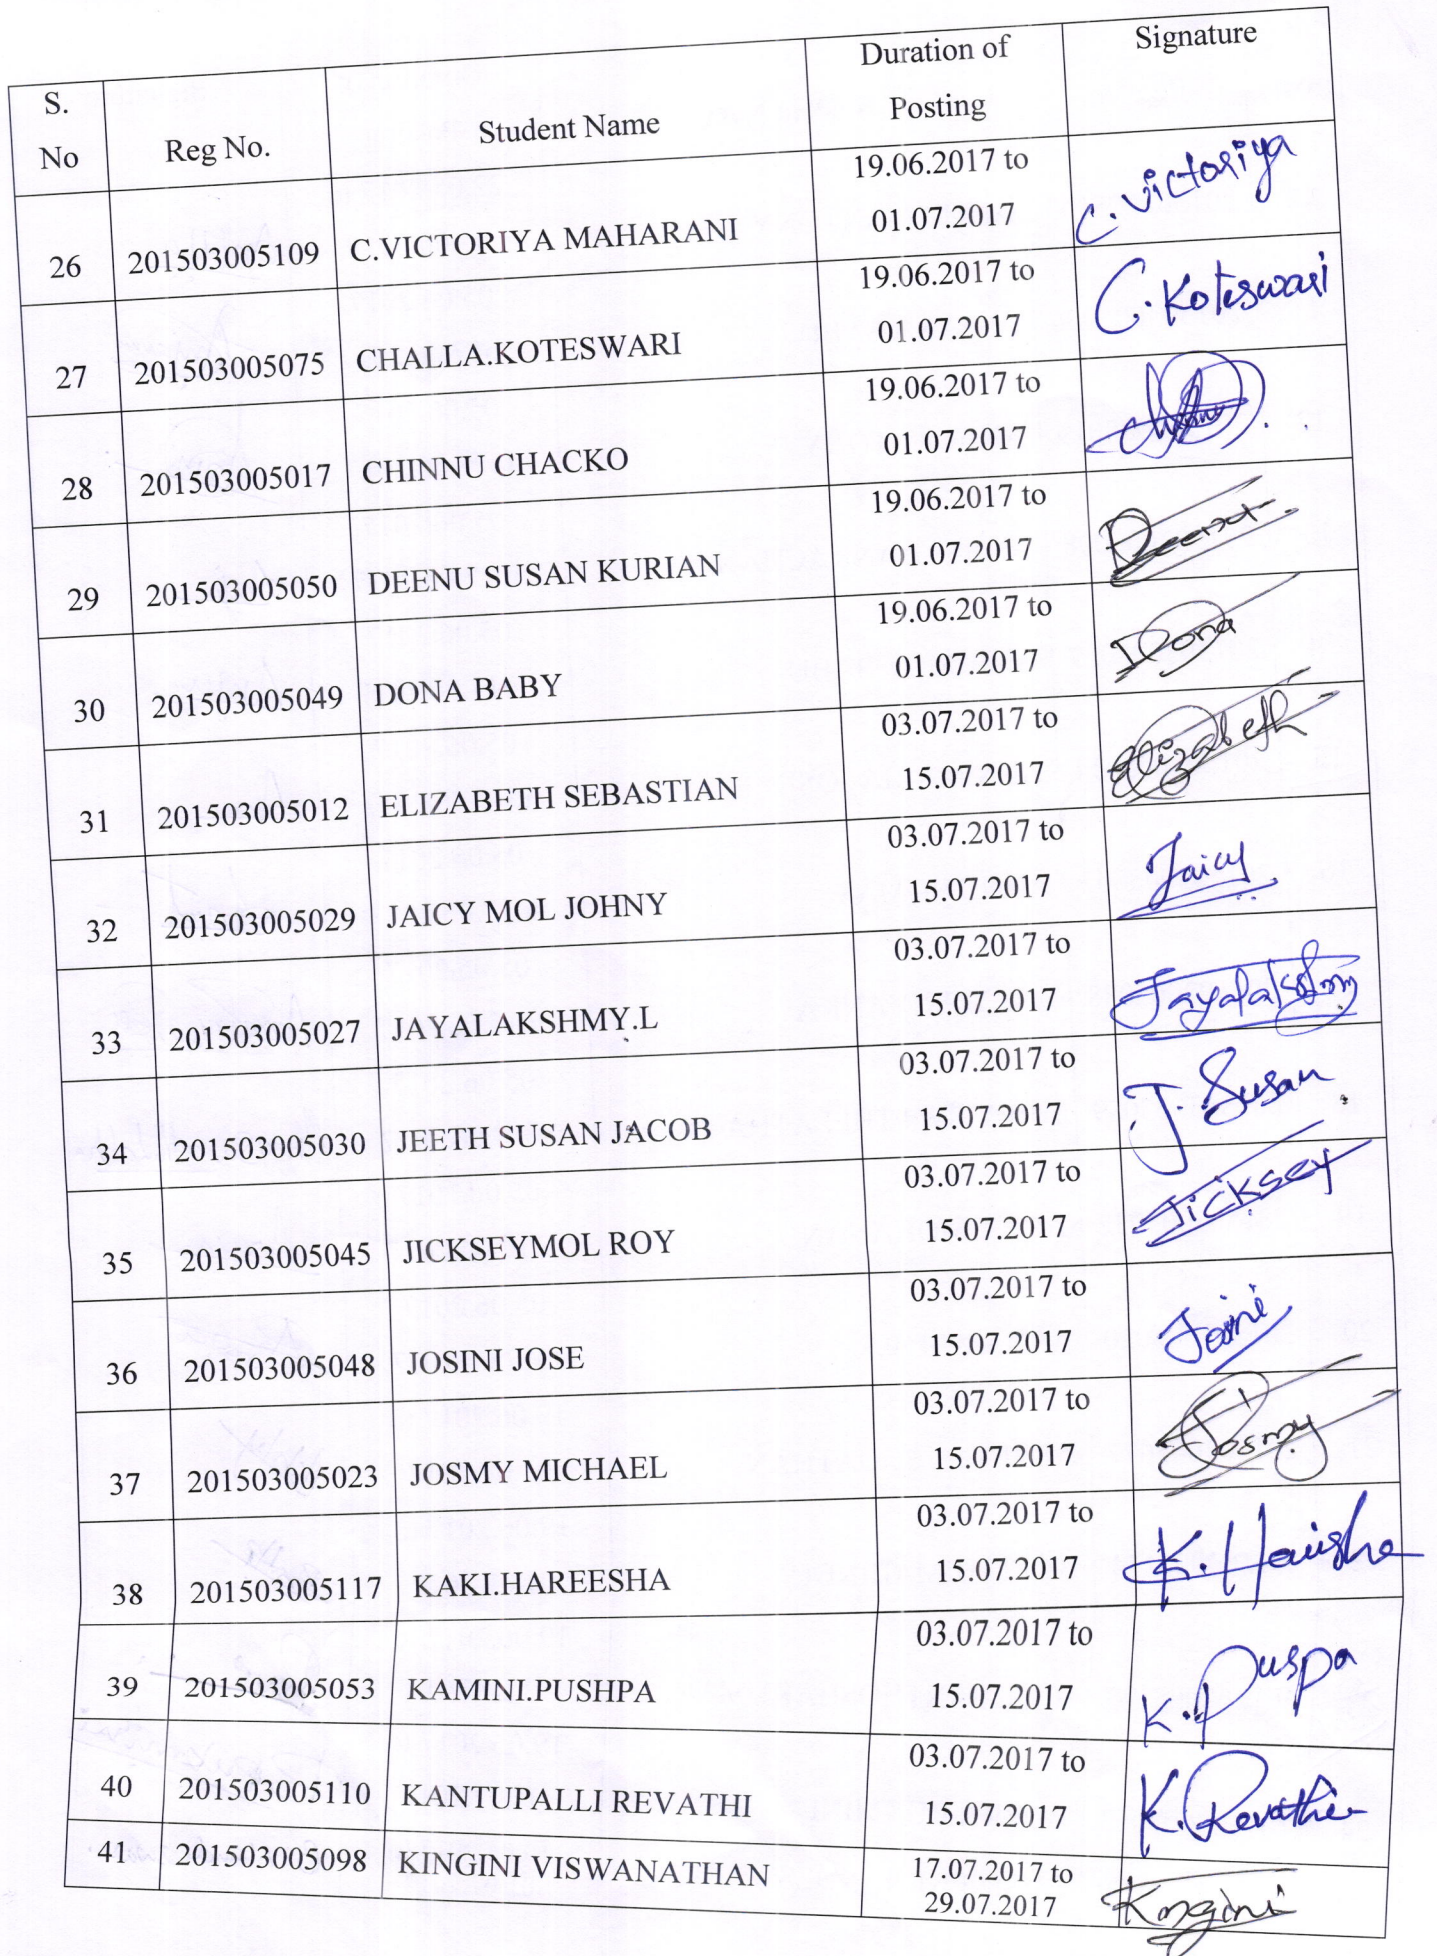 S. No Reg No. Student Name Duration of Posting Signature
26 201503005109 C.VICTORIYA MAHARANI 19.06.2017 to 01.07.2017 C. Victoriya
27 201503005075 CHALLA.KOTESWARI 19.06.2017 to 01.07.2017 C. Koteswari
28 201503005017 CHINNU CHACKO 19.06.2017 to 01.07.2017
29 201503005050 DEENU SUSAN KURIAN 19.06.2017 to 01.07.2017
30 201503005049 DONA BABY 19.06.2017 to 01.07.2017 Dona
31 201503005012 ELIZABETH SEBASTIAN 03.07.2017 to 15.07.2017 Elizabeth
32 201503005029 JAICY MOL JOHNY 03.07.2017 to 15.07.2017 Jaicy
33 201503005027 JAYALAKSHMY.L 03.07.2017 to 15.07.2017 Jayalakshmy
34 201503005030 JEETH SUSAN JACOB 03.07.2017 to 15.07.2017 J. Susan
35 201503005045 JICKSEYMOL ROY 03.07.2017 to 15.07.2017 Jicksey
36 201503005048 JOSINI JOSE 03.07.2017 to 15.07.2017
37 201503005023 JOSMY MICHAEL 03.07.2017 to 15.07.2017 Josmy
38 201503005117 KAKI.HAREESHA 03.07.2017 to 15.07.2017 K.
39 201503005053 KAMINI.PUSHPA 03.07.2017 to 15.07.2017 K. Puspa
40 201503005110 KANTUPALLI REVATHI 03.07.2017 to 15.07.2017 K. Revathi
41 201503005098 KINGINI VISWANATHAN 17.07.2017 to 29.07.2017 Kingini